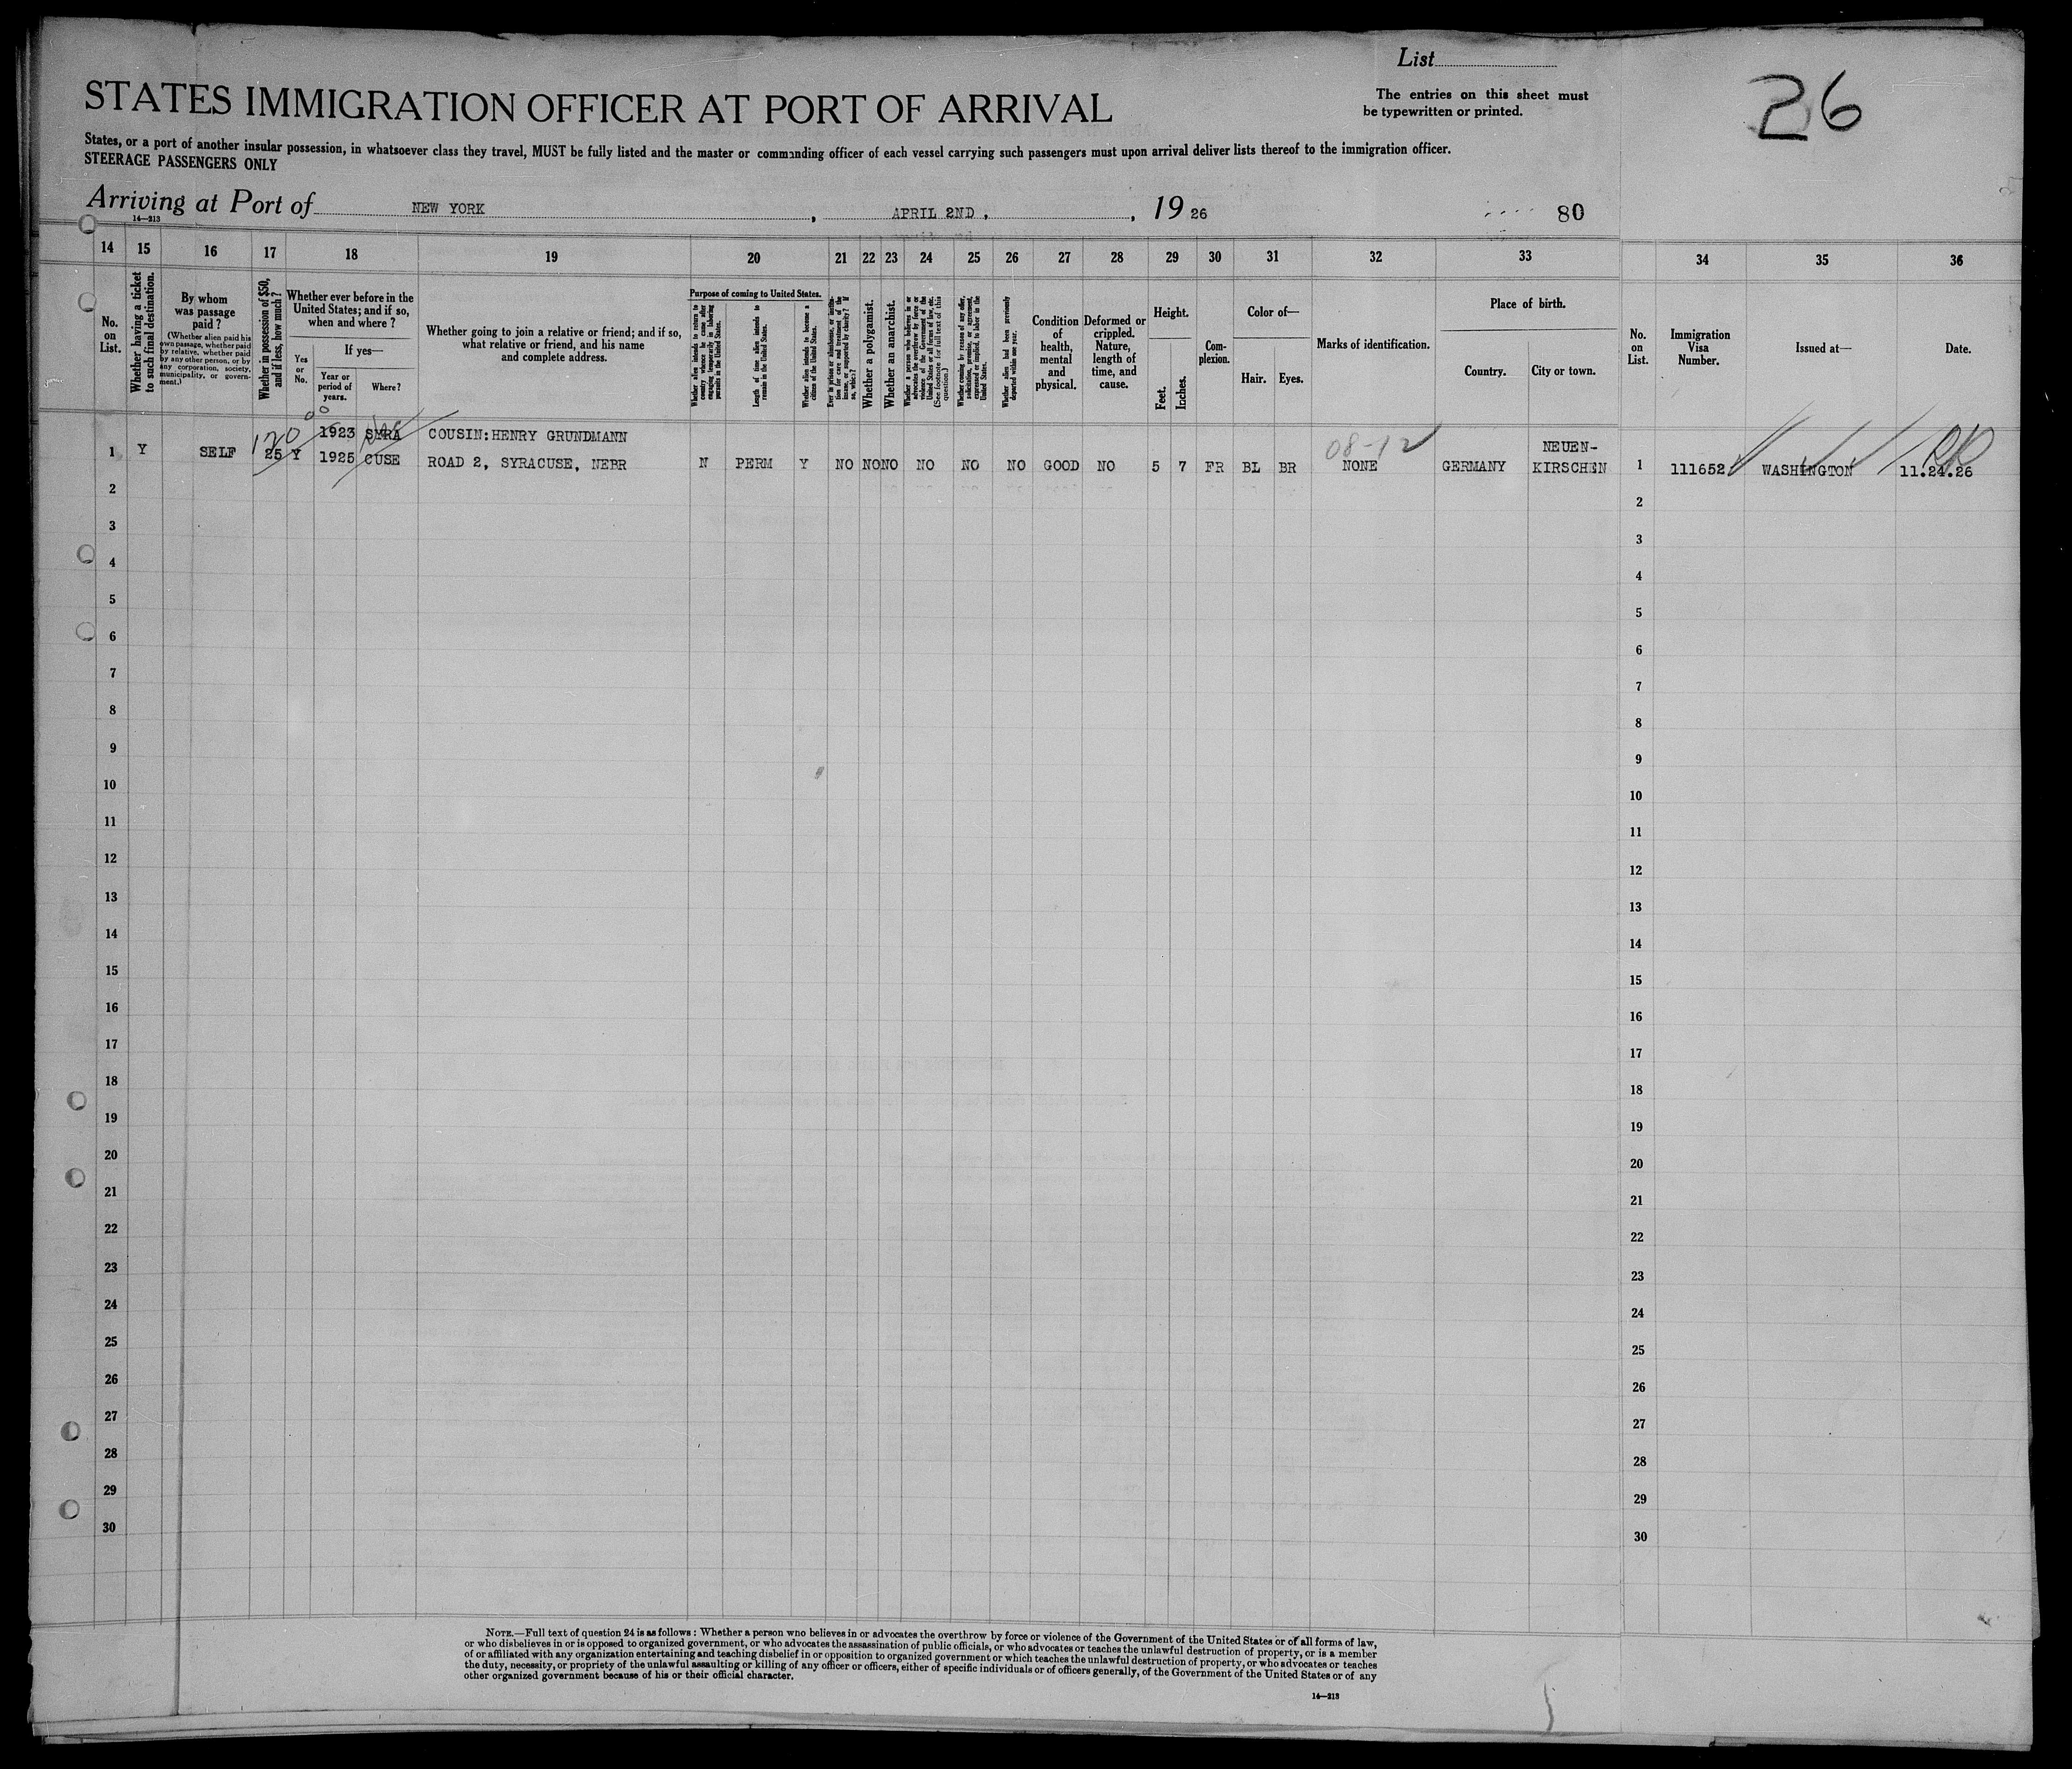 List
26
The entries on this sheet must
be typewritten or printed.
STATES IMMIGRATION OFFICER AT PORT OF ARRIVAL
States, or a port of another insular possession, in whatsoever class they travel, MUST be fully listed and the master or commanding officer of each vessel carrying such passengers must upon arrival deliver lists thereof to the immigration officer.
STEERAGE PASSENGERS ONLY
Arriving at Port of NEW YORK, APRIL 2ND, 1926 80
14—213
14 15 16 17 18 19 20 21 22 23 24 25 26 27 28 29 30 31 32 33 34 35 36
No. on List.
Whether having a ticket to such final destination.
By whom was passage paid?
(Whether alien paid his own passage, whether paid by relative, whether paid by any other person, or by any corporation, society, municipality, or government.)
Whether in possession of $50, and if less, how much?
Whether ever before in the United States; and if so, when and where?
Yes or No.
If yes—
Year or period of years.
Where?
Whether going to join a relative or friend; and if so, what relative or friend, and his name and complete address.
Purpose of coming to United States.
Whether alien intends to return to country whence he came after engaging temporarily in laboring pursuits in the United States.
Length of time alien intends to remain in the United States.
Whether alien intends to become a citizen of the United States.
Ever in prison or almshouse, or institution for care and treatment of the insane, or supported by charity? If so, which?
Whether a polygamist.
Whether an anarchist.
Whether a person who believes in or advocates the overthrow by force or violence of the Government of the United States or all forms of law, etc. (See footnote for full text of this question.)
Whether coming by reason of any offer, solicitation, promise, or agreement, expressed or implied, to labor in the United States.
Whether alien had been previously deported within one year.
Condition of health, mental and physical.
Deformed or crippled. Nature, length of time, and cause.
Height.
Feet.
Inches.
Complexion.
Color of—
Hair.
Eyes.
Marks of identification.
Place of birth.
Country.
City or town.
No. on List.
Immigration Visa Number.
Issued at—
Date.
120 1923 SYRA COUSIN:HENRY GRUNDMANN 08-12 NEUEN-
1 Y SELF 25 Y 1925 CUSE ROAD 2, SYRACUSE, NEBR N PERM Y NO NO NO NO NO NO GOOD NO 5 7 FR BL BR NONE GERMANY KIRSCHEN 1 111652 WASHINGTON 11.24.26
2 2
3 3
4 4
5 5
6 6
7 7
8 8
9 9
10 10
11 11
12 12
13 13
14 14
15 15
16 16
17 17
18 18
19 19
20 20
21 21
22 22
23 23
24 24
25 25
26 26
27 27
28 28
29 29
30 30
NOTE.—Full text of question 24 is as follows: Whether a person who believes in or advocates the overthrow by force or violence of the Government of the United States or of all forms of law,
or who disbelieves in or is opposed to organized government, or who advocates the assassination of public officials, or who advocates or teaches the unlawful destruction of property, or is a member
of or affiliated with any organization entertaining and teaching disbelief in or opposition to organized government or which teaches the unlawful destruction of property, or who advocates or teaches
the duty, necessity, or propriety of the unlawful assaulting or killing of any officer or officers, either of specific individuals or of officers generally, of the Government of the United States or of any
other organized government because of his or their official character.
14—213